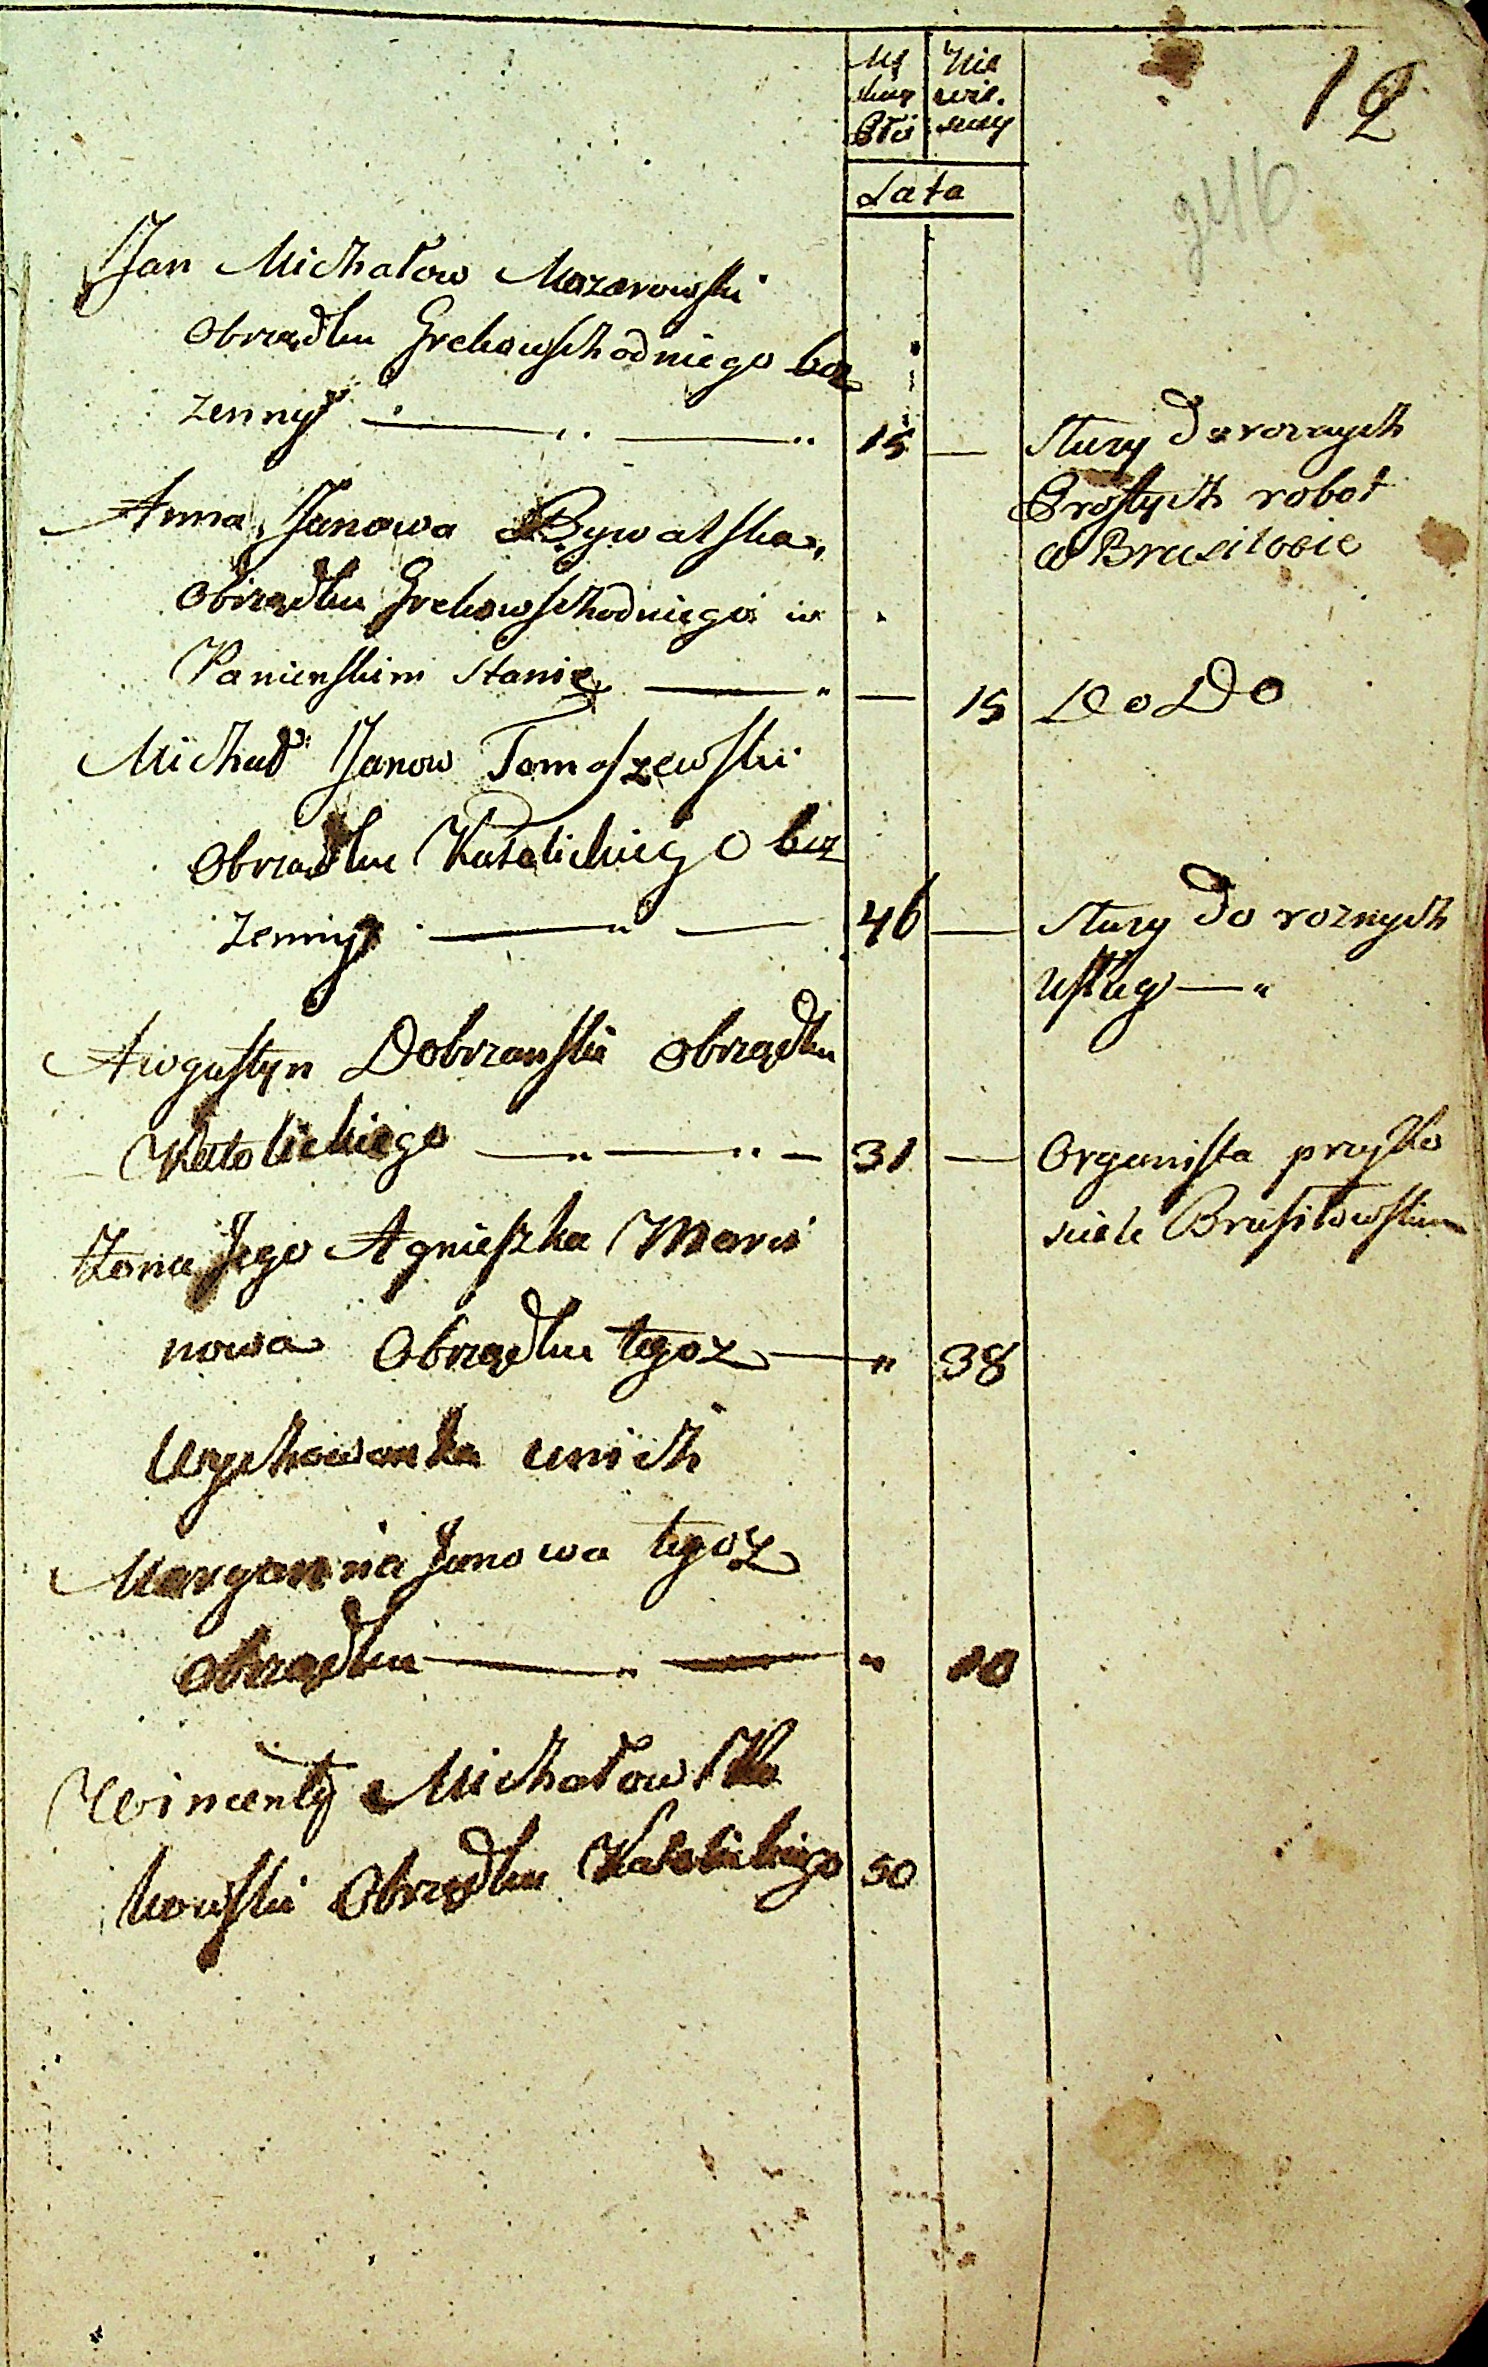 12
Lata
946
Jan Michałow Mazarowski
Obrządku Grekowschodniego bez
zennÿ 15 — służy do roznych
Prostych robot
w Brusiłowie
Anna Janowa Bywalska,
Obrządku Grekowschodniego w
Panienskim stanie — 15 Do Do
Michał Janow Tomaszewski
Obrządku Katolickiego bez
zennÿ 46 — służy do roznych
usług —
Awgustyn Dobrzanski obrządku
Katolickiego 31 — Organista przy Ko
sciele Brusiłowskim
Żona Jego Agnieszka Marci
nowa Obrządku tegoz — 38
Wychowanka unich
Maryanna Janowa tegoz
obrządku — 10
Wincenty Michałow
kowski Obrządku Katolickiego 50